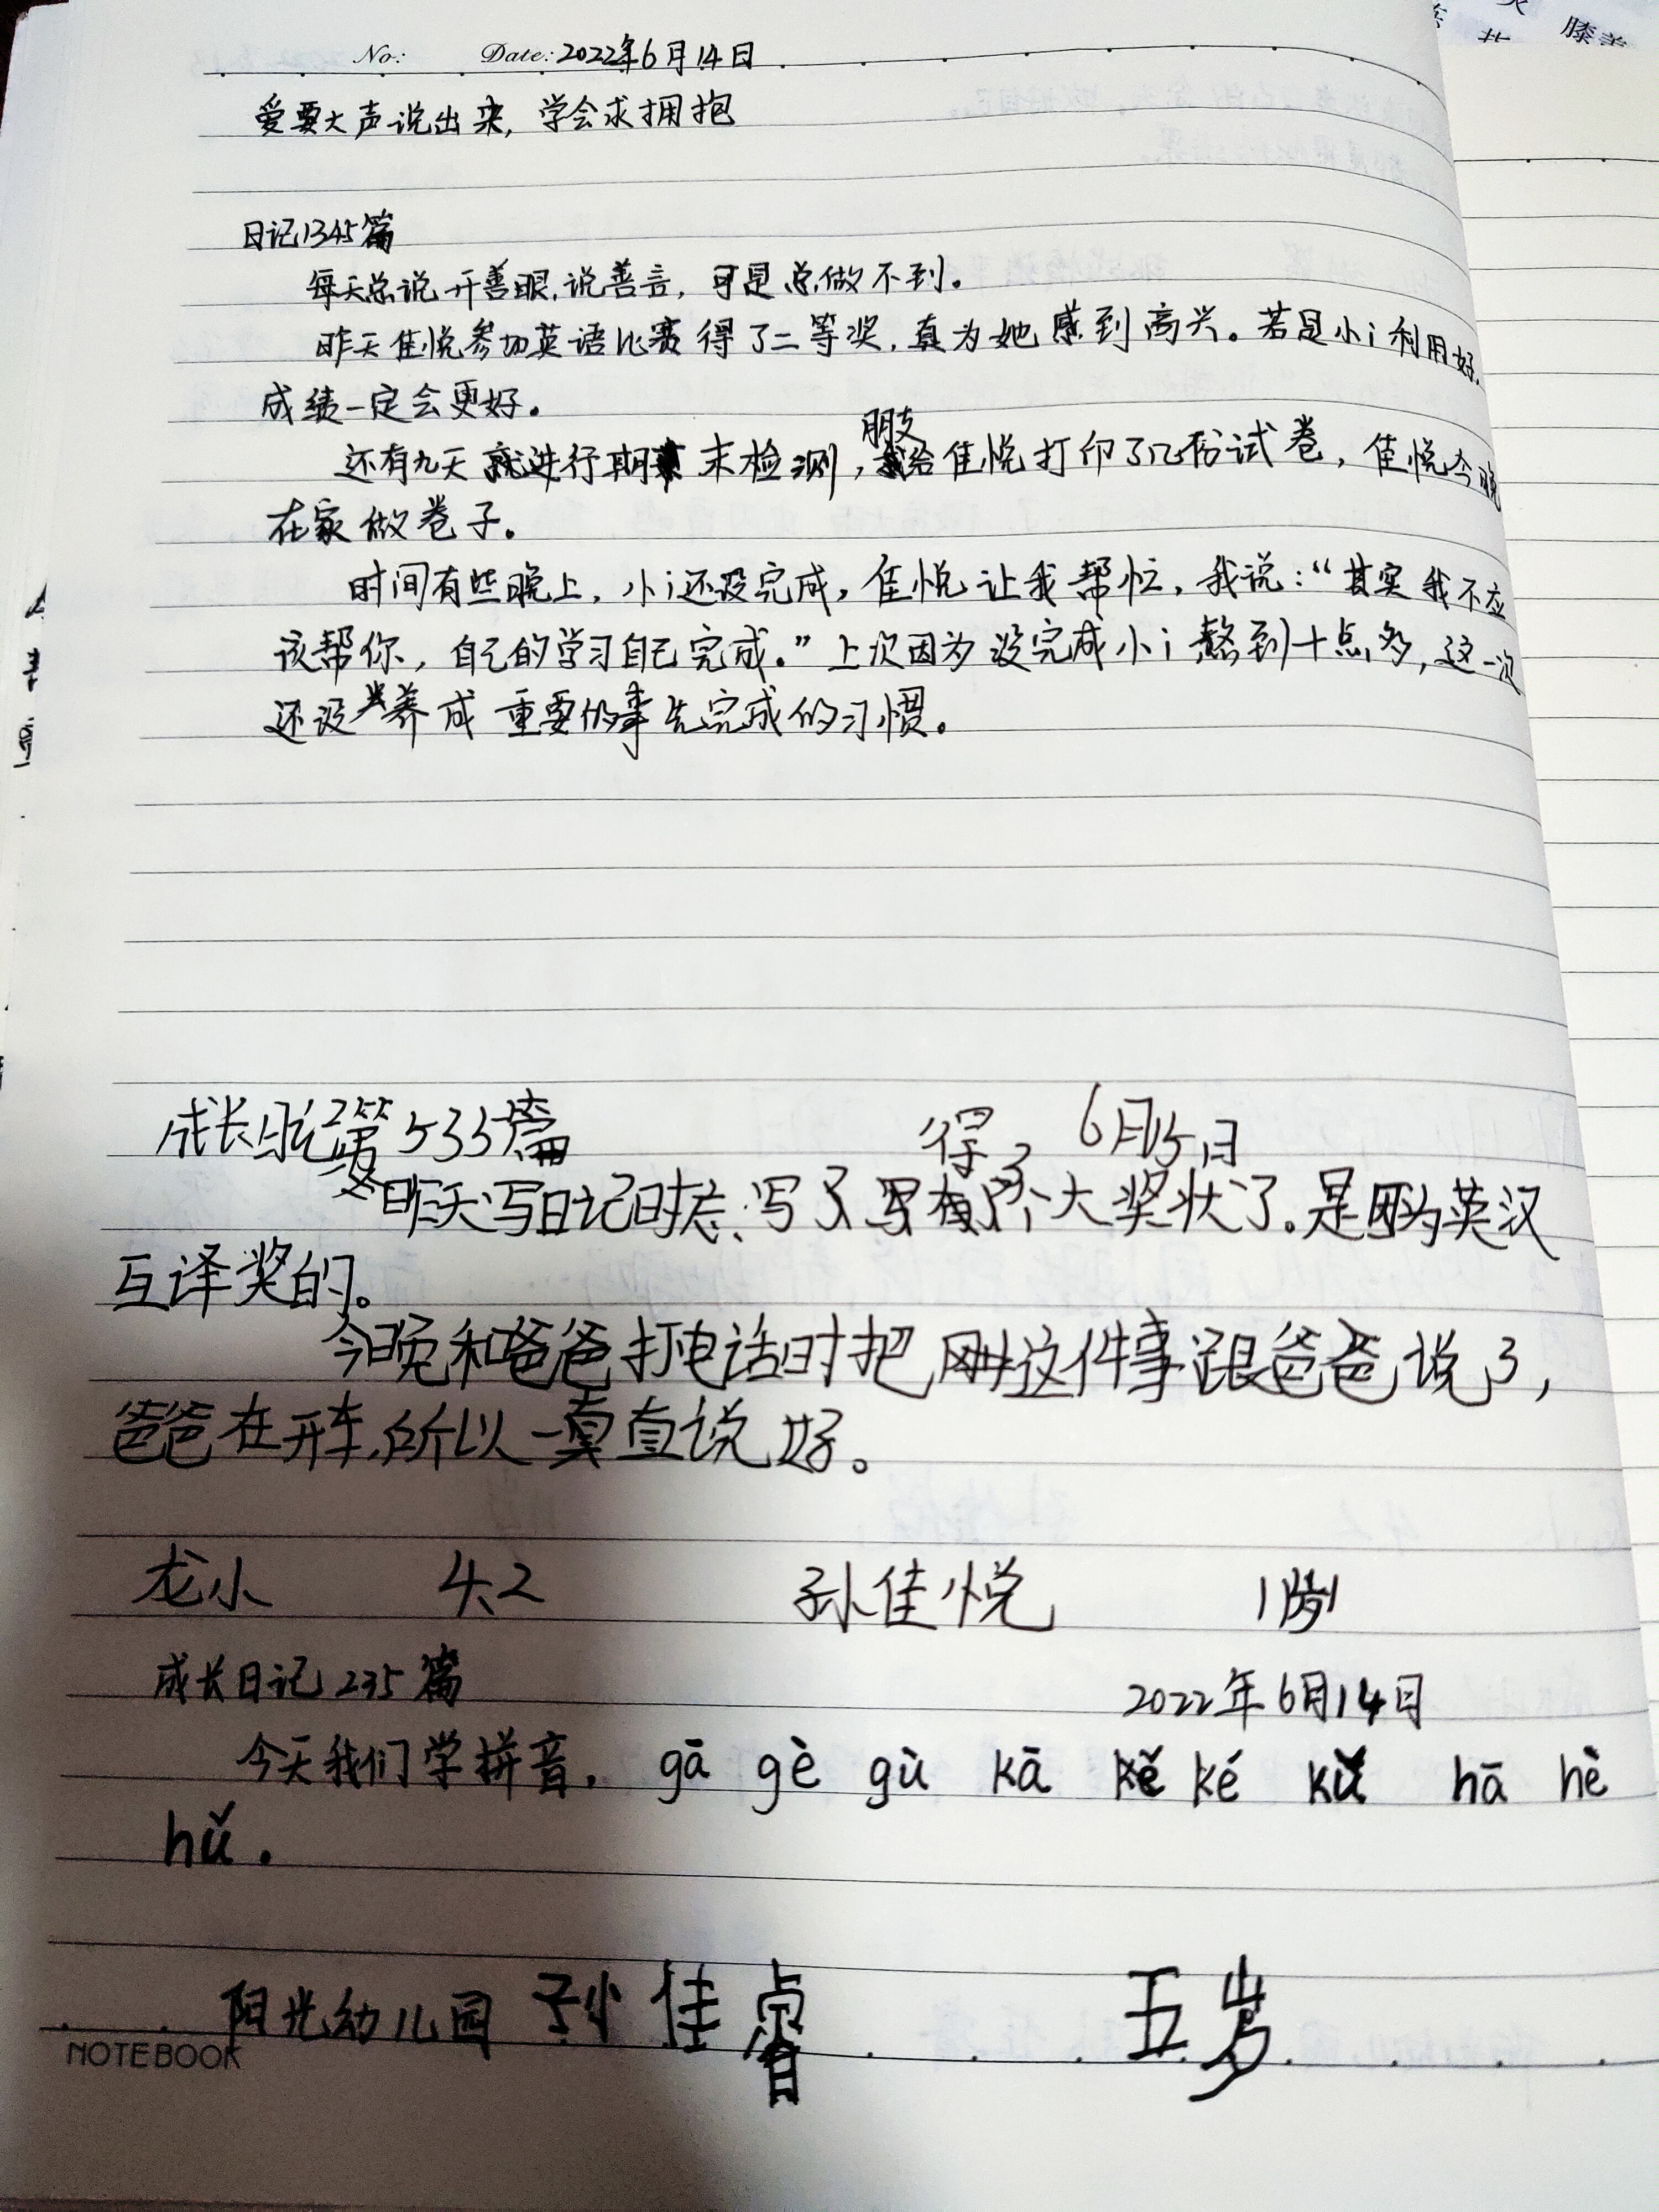 No: Date: 2022年6月14日
爱要大声说出来，学会求拥抱
日记1345篇
每天总说开善眼，说善言，可是总做不到。
昨天佳悦参加英语比赛得了二等奖，真为她感到高兴。若是小i利用好，
成绩一定会更好。
还有九天就进行期末检测，朋友给佳悦打印了几份试卷，佳悦今晚
在家做卷子。
时间有些晚上，小i还没完成，佳悦让我帮忙，我说：“其实我不应
该帮你，自己的学习自己完成。”上次因为没完成小i熬到十点多，这一次
还没养成重要的事先完成的习惯。
成长日记第533篇 6月15日
昨天写日记时忘写了得了个大奖状了。是因为英汉
互译奖的。
今晚和爸爸打电话时把这件事跟爸爸说了，
爸爸在开车，所以一直说好。
龙小 4.2 孙佳悦 1
成长日记235篇 2022年6月14日
今天我们学拼音，gā gè gù kā ké kǔ hā hè
hǔ.
阳光幼儿园 孙佳睿 五岁
NOTEBOOK
膝盖